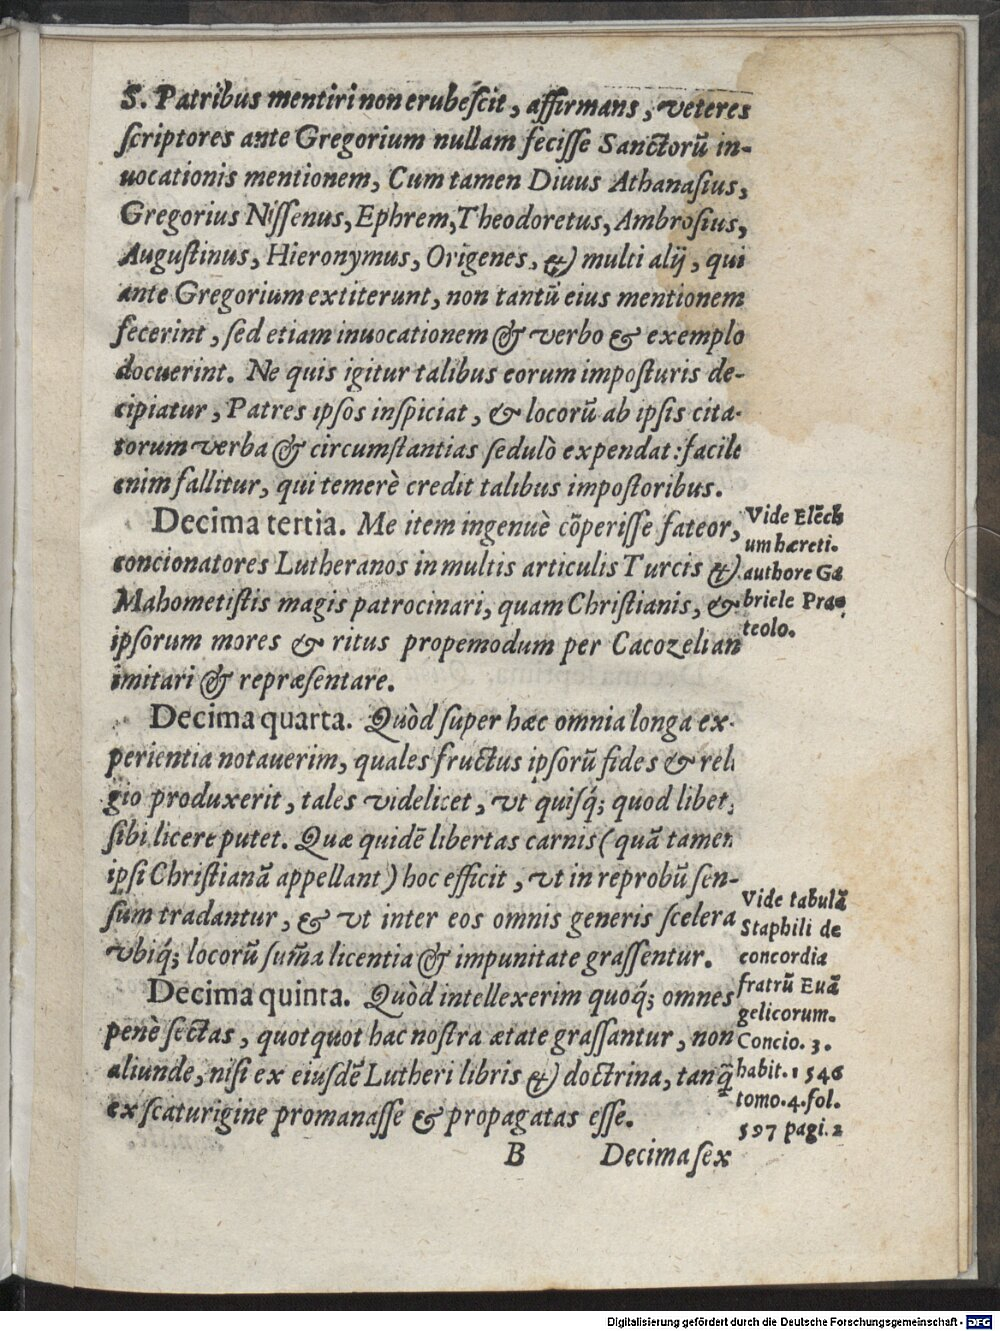 S. Patribus mentiri non erubeſcit, affirmans, veteres
ſcriptores ante Gregorium nullam feciſſe Sanctorū in-
uocationis mentionem, Cum tamen Diuus Athanaſius,
Gregorius Niſſenus, Ephrem, Theodoretus, Ambroſius,
Auguſtinus, Hieronymus, Origenes, & multi alij, qui
ante Gregorium extiterunt, non tantū eius mentionem
fecerint, ſed etiam inuocationem & verbo & exemplo
docuerint. Ne quis igitur talibus eorum impoſturis de-
cipiatur, Patres ipſos inſpiciat, & locorū ab ipſis cita-
torum verba & circumſtantias ſedulò expendat: facile
enim fallitur, qui temerè credit talibus impoſtoribus.
Decima tertia. Me item ingenuè cōperiſſe fateor,
concionatores Lutheranos in multis articulis Turcis &
Mahometiſtis magis patrocinari, quam Chriſtianis, &
ipſorum mores & ritus propemodum per Cacozelian
imitari & repræſentare.
Vide Elēch
um hæreti.
authore Ga
briele Præ-
teolo.
Decima quarta. Quòd ſuper hæc omnia longa ex-
perientia notauerim, quales fructus ipſorū fides & reli
gio produxerit, tales videlicet, vt quiſq́; quod libet,
ſibi licere putet. Quæ quidē libertas carnis (quā tamen
ipſi Chriſtianā appellant) hoc efficit, vt in reprobū ſen-
ſum tradantur, & vt inter eos omnis generis ſcelera
vbiq́; locorū ſum̄a licentia & impunitate graſſentur.
Decima quinta. Quòd intellexerim quoq́; omnes
penè ſectas, quotquot hac noſtra ætate graſſantur, non
aliunde, niſi ex eiuſdē Lutheri libris & doctrina, tanq̄
ex ſcaturigine promanaſſe & propagatas eſſe.
Vide tabulā
Staphili de
concordia
fratrū Euā
gelicorum.
Concio. 3.
habit. 1546
tomo. 4. fol.
597 pagi. 2
B Decima ſex
Digitalisierung gefördert durch die Deutsche Forschungsgemeinschaft - DFG